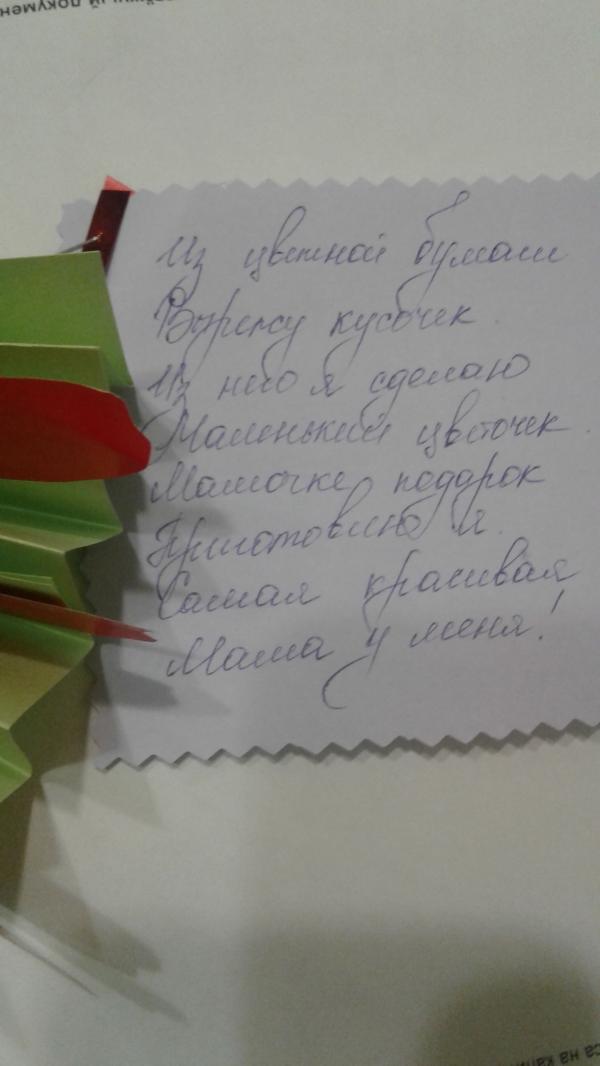 Из цветной бумаги
Вырежу кусочек.
Из него я сделаю
Маленький цветочек.
Мамочке подарок
Приготовлю я.
Самая красивая
Мама у меня!